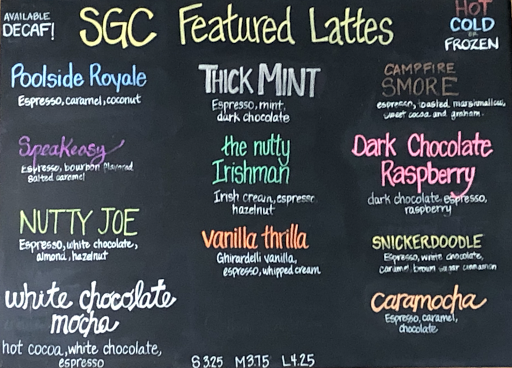 AVAILABLE
DECAF!
SGC Featured Lattes
HOT
COLD
OR
FROZEN
Poolside Royale
Espresso, caramel, coconut
Speakeasy
Espresso, bourbon flavored
salted caramel
NUTTY JOE
Espresso, white chocolate,
almond, hazelnut
white chocolate
mocha
hot cocoa, white chocolate,
espresso
THICK MINT
Espresso, mint,
dark chocolate
the nutty
Irishman
Irish cream, espresso
hazelnut
vanilla thrilla
Ghirardelli vanilla,
espresso, whipped cream
S 3.25 M 3.75 L 4.25
CAMPFIRE
SMORE
espresso, toasted marshmallow,
sweet cocoa and graham
Dark Chocolate
Raspberry
dark chocolate, espresso,
raspberry
SNICKERDOODLE
Espresso, white chocolate,
caramel, brown sugar cinnamon
caramocha
Espresso, caramel,
chocolate